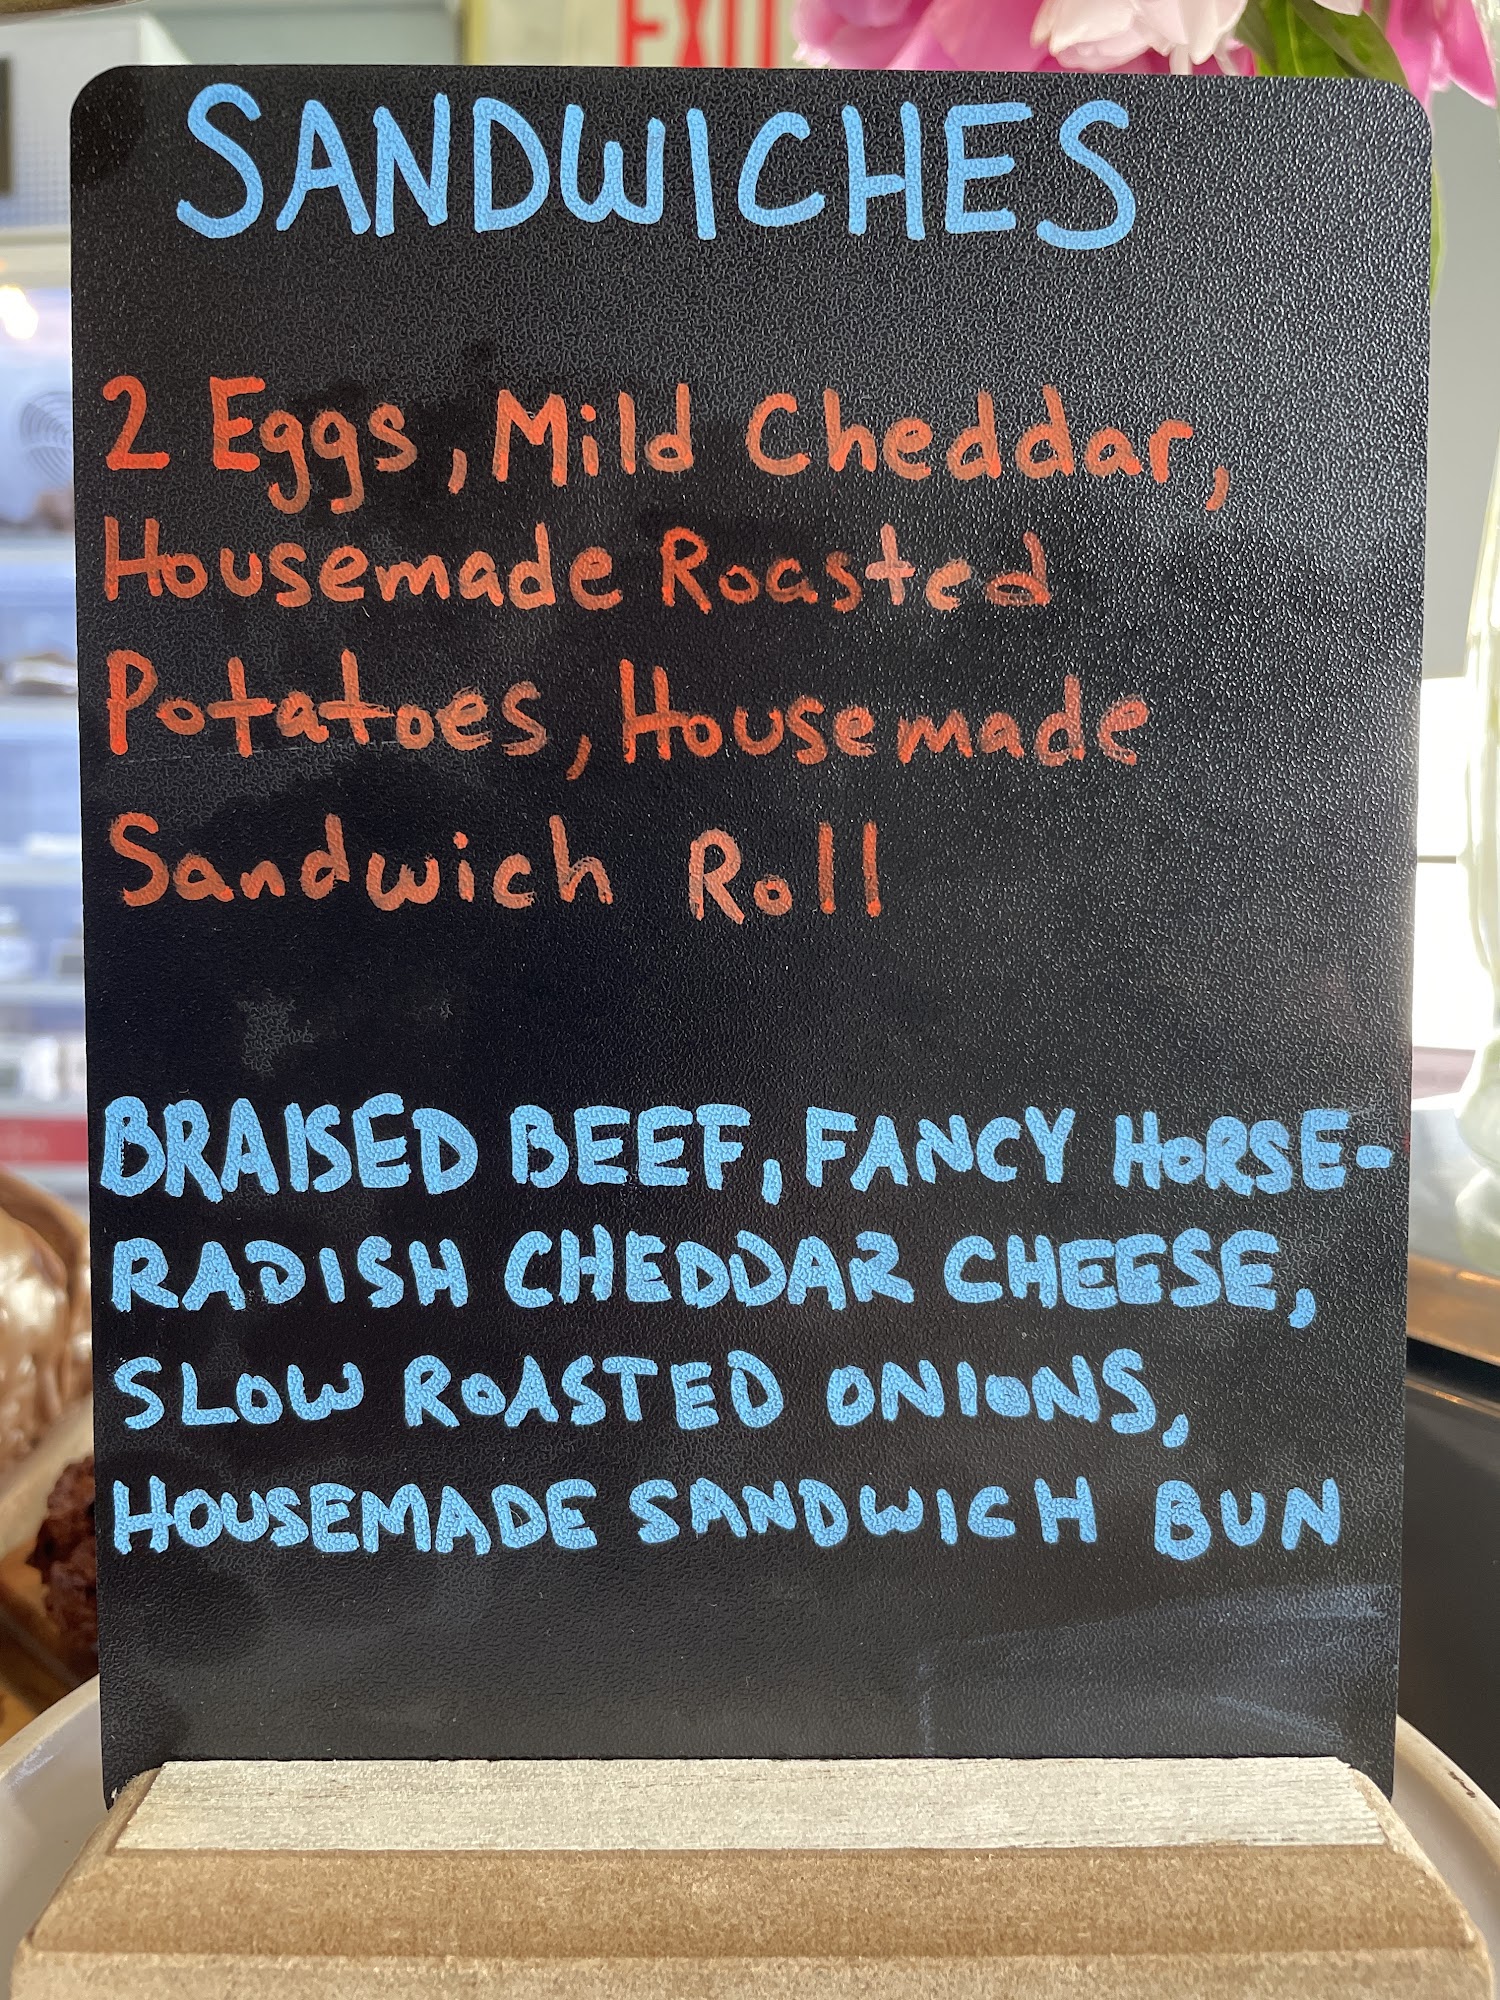 EXIT
SANDWICHES
2 Eggs, Mild Cheddar,
Housemade Roasted
Potatoes, Housemade
Sandwich Roll
BRAISED BEEF, FANCY HORSE-
RADISH CHEDDAR CHEESE,
SLOW ROASTED ONIONS,
HOUSEMADE SANDWICH BUN